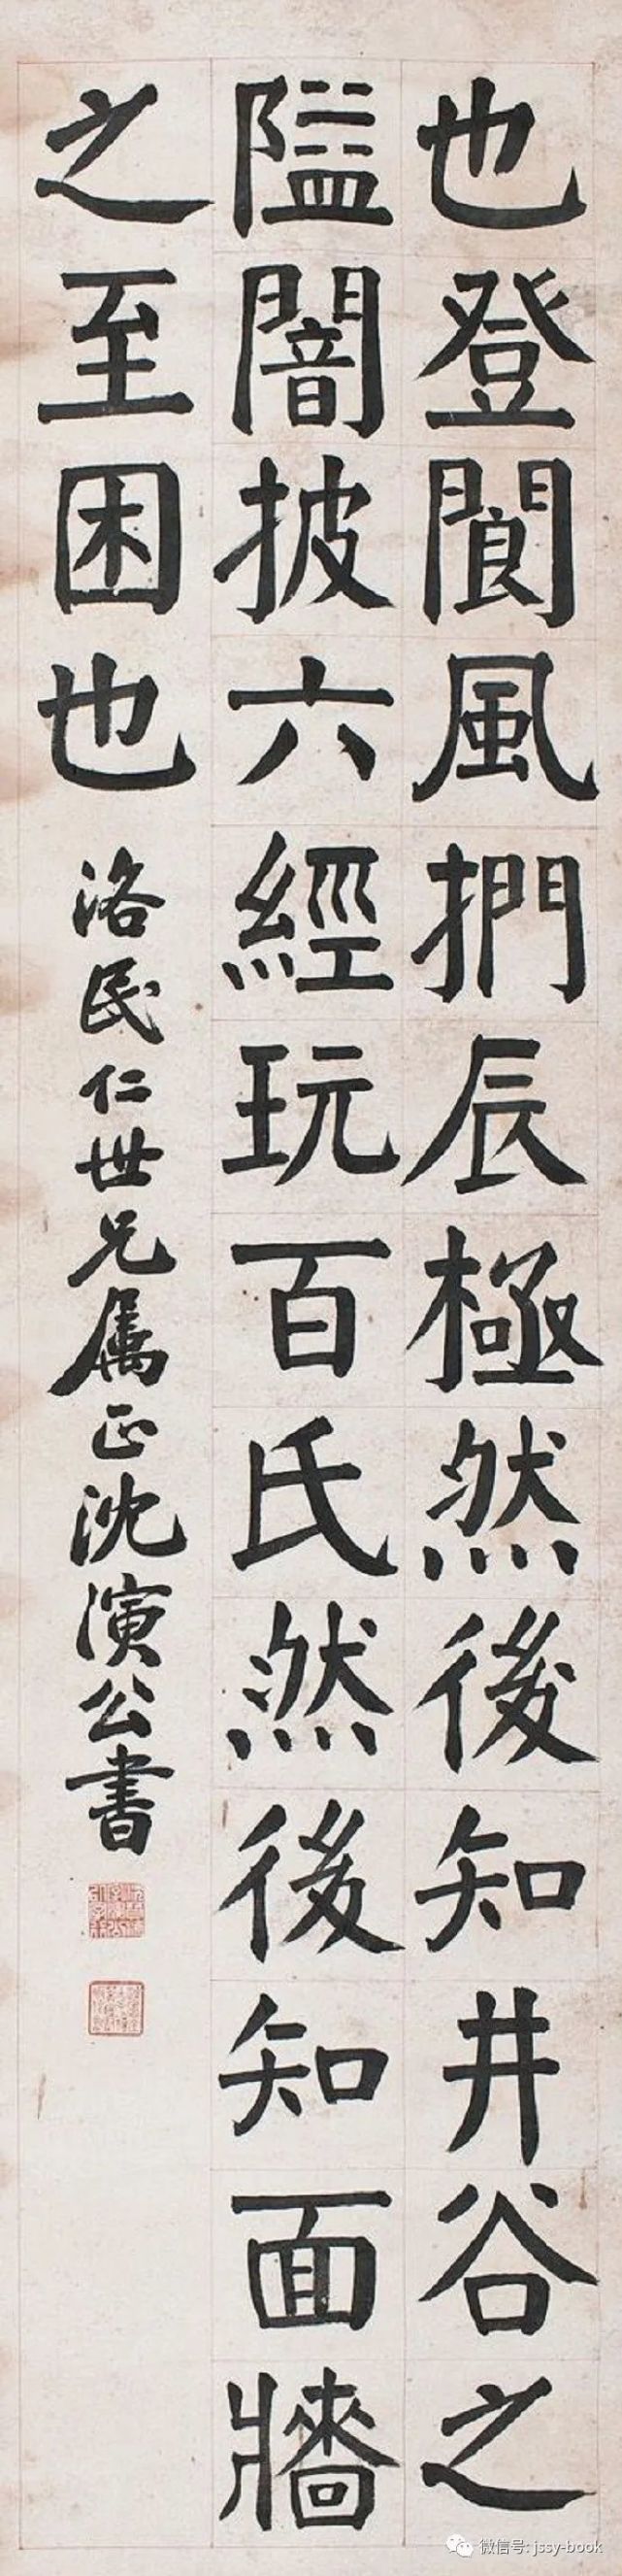 也登閬風捫辰極然後知井谷之
隘闇披六經玩百氏然後知面牆
之至困也
洛民仁世兄属正沈演公書
微信号: jssy-book